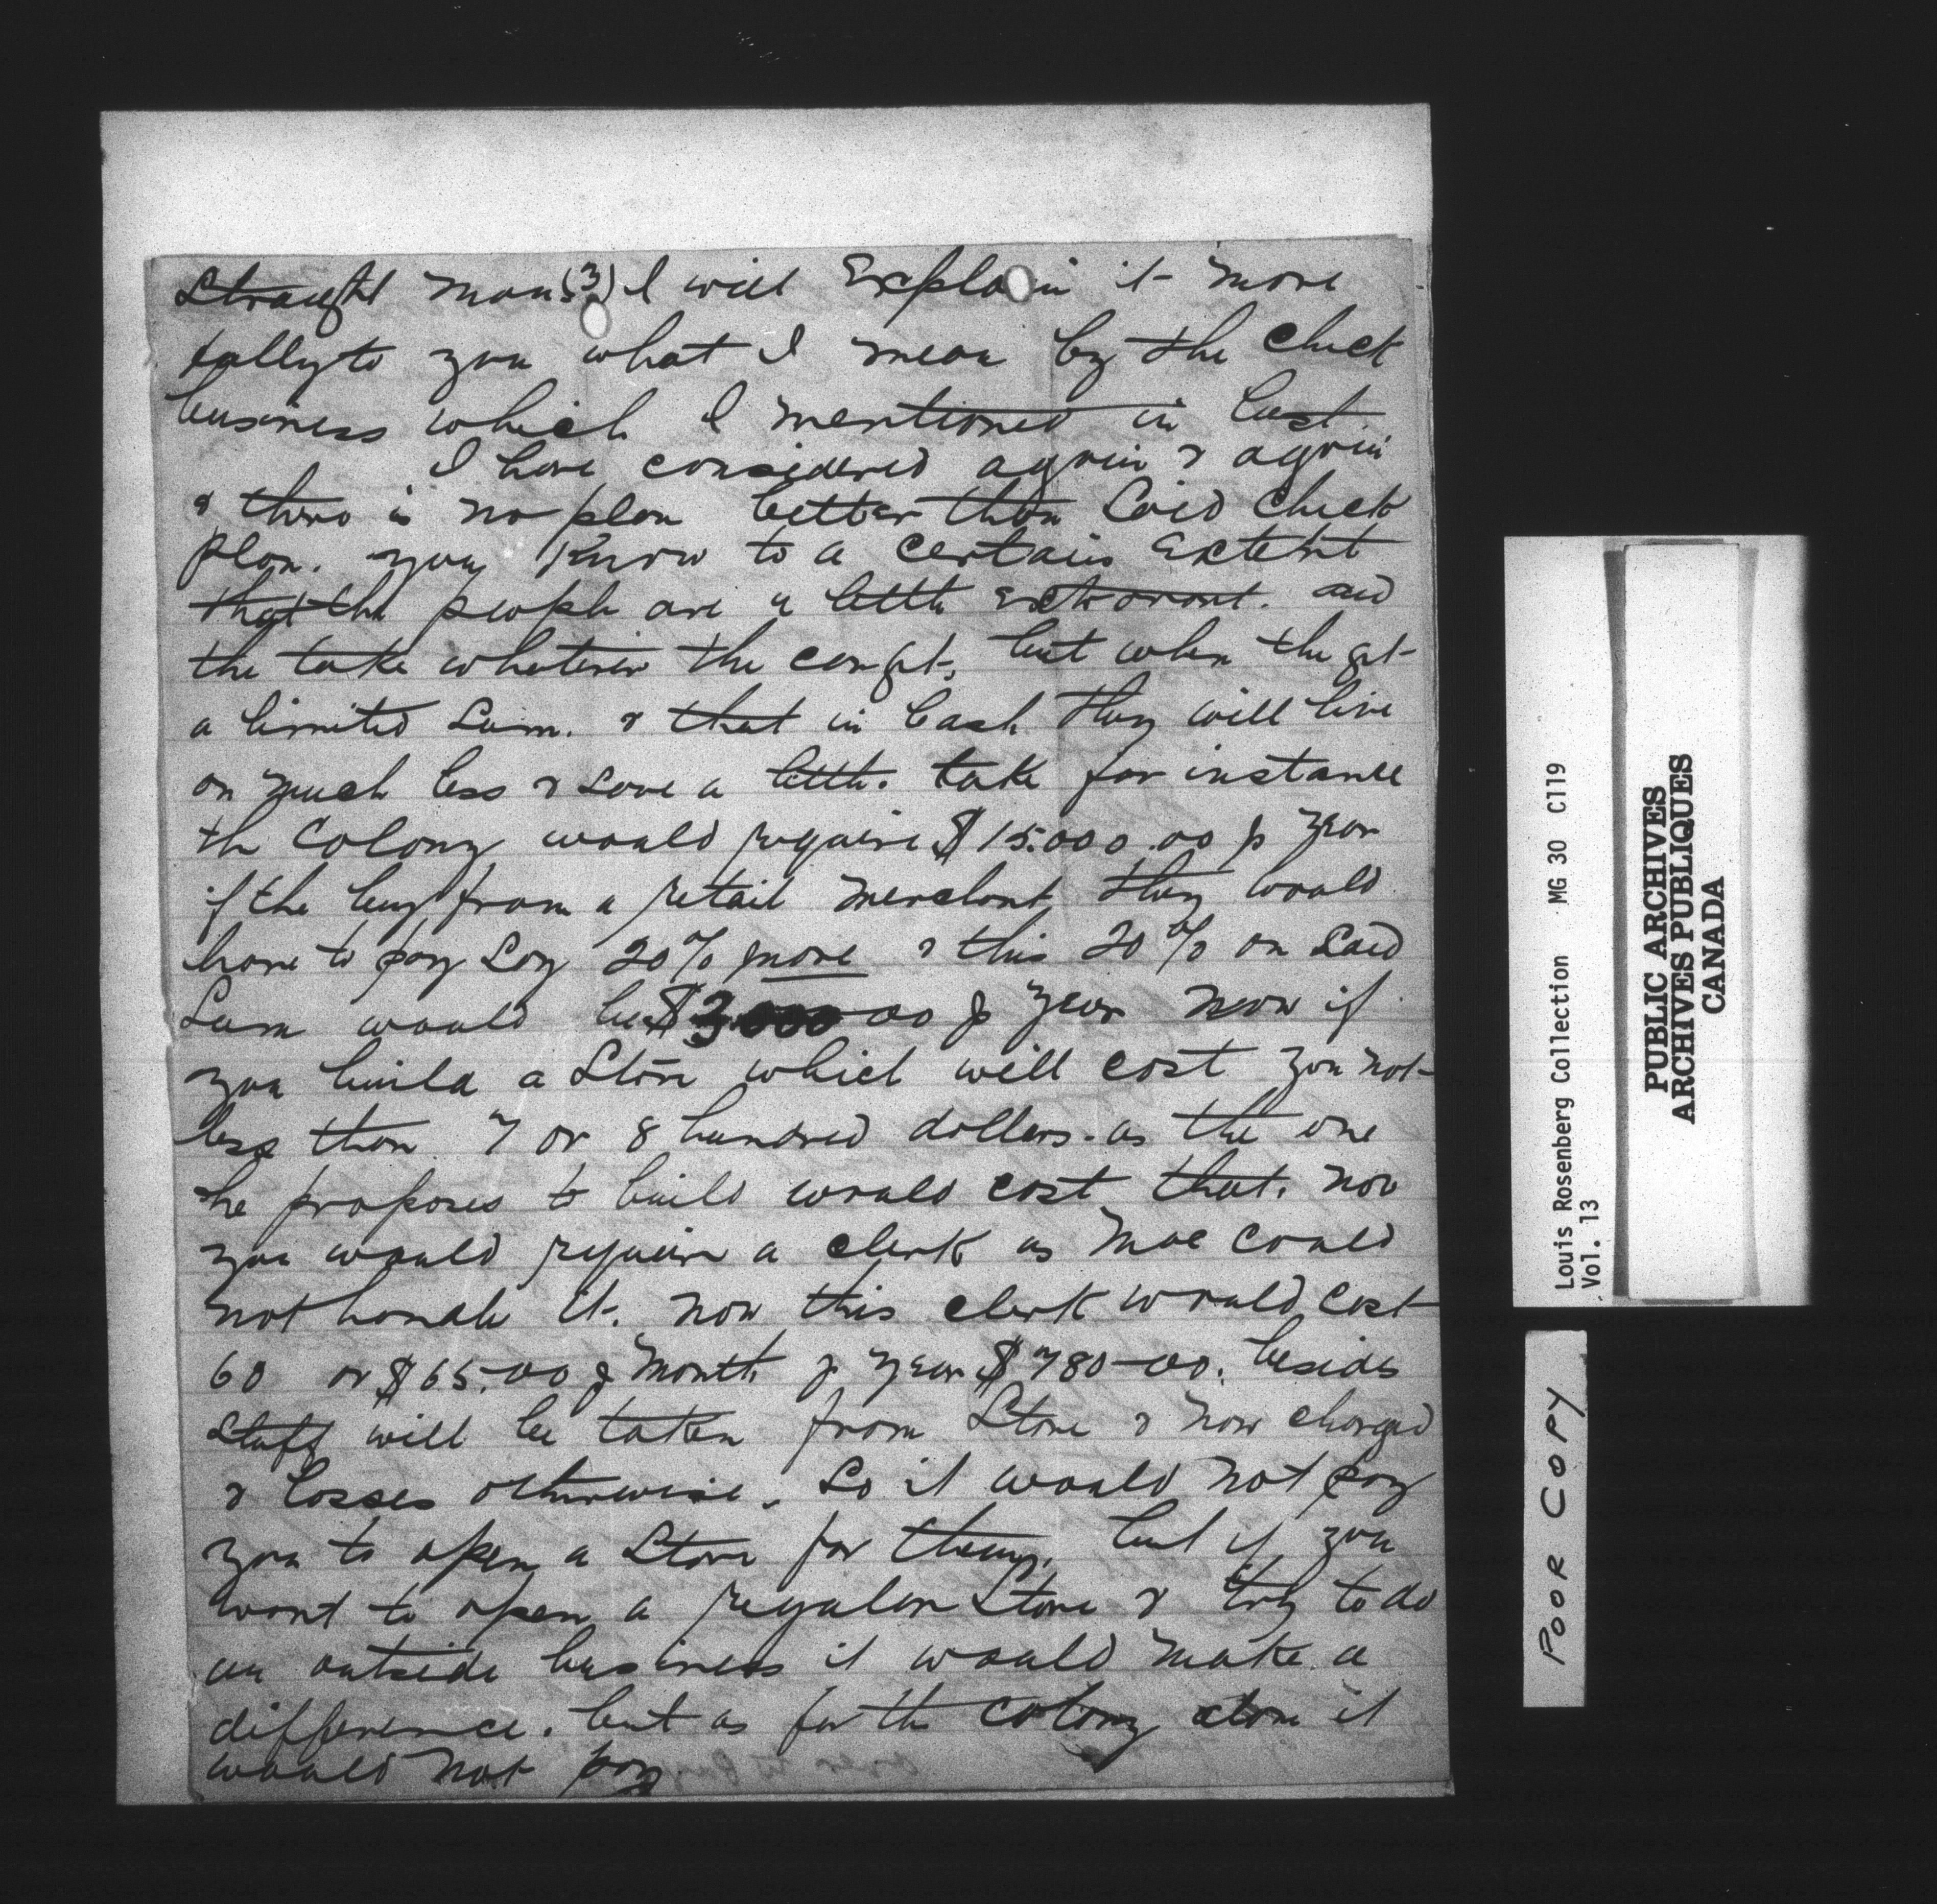 Straught man (3) I will Explain it more
fully to you what I mean by the check
business which I mentioned in last
I have considered again & again
& there is no plan better than Said Check
plan. you know to a certain Extent
that the people are a little and
the take whatever the can get, but when the get
a limited Sum. & that in Cash they will live
on much less & save a little. take for instance
the Colony would require $15.000.00 p year
if the buy from a retail merchant they would
have to pay Say 20% more & this 20% on Said
Sum would be $3000 00 p year now if
you build a Store which will cost you not
less than 7 or 8 hundred dollars. as the one
he proposes to build would cost that. now
you would require a clerk as Mac could
not handle it. now this clerk would cost
60 or $65.00 p Month p year $780-00. besides
Stuff will be taken from Store & now charged
& losses otherwise. So it would not pay
you to open a Store for them. but if you
want to open a regular Store & try to do
an outside business it would make a
difference. but as for the Colony alone it
would not pay
Louis Rosenberg Collection MG 30 C119
Vol. 13
PUBLIC ARCHIVES
ARCHIVES PUBLIQUES
CANADA
POOR COPY